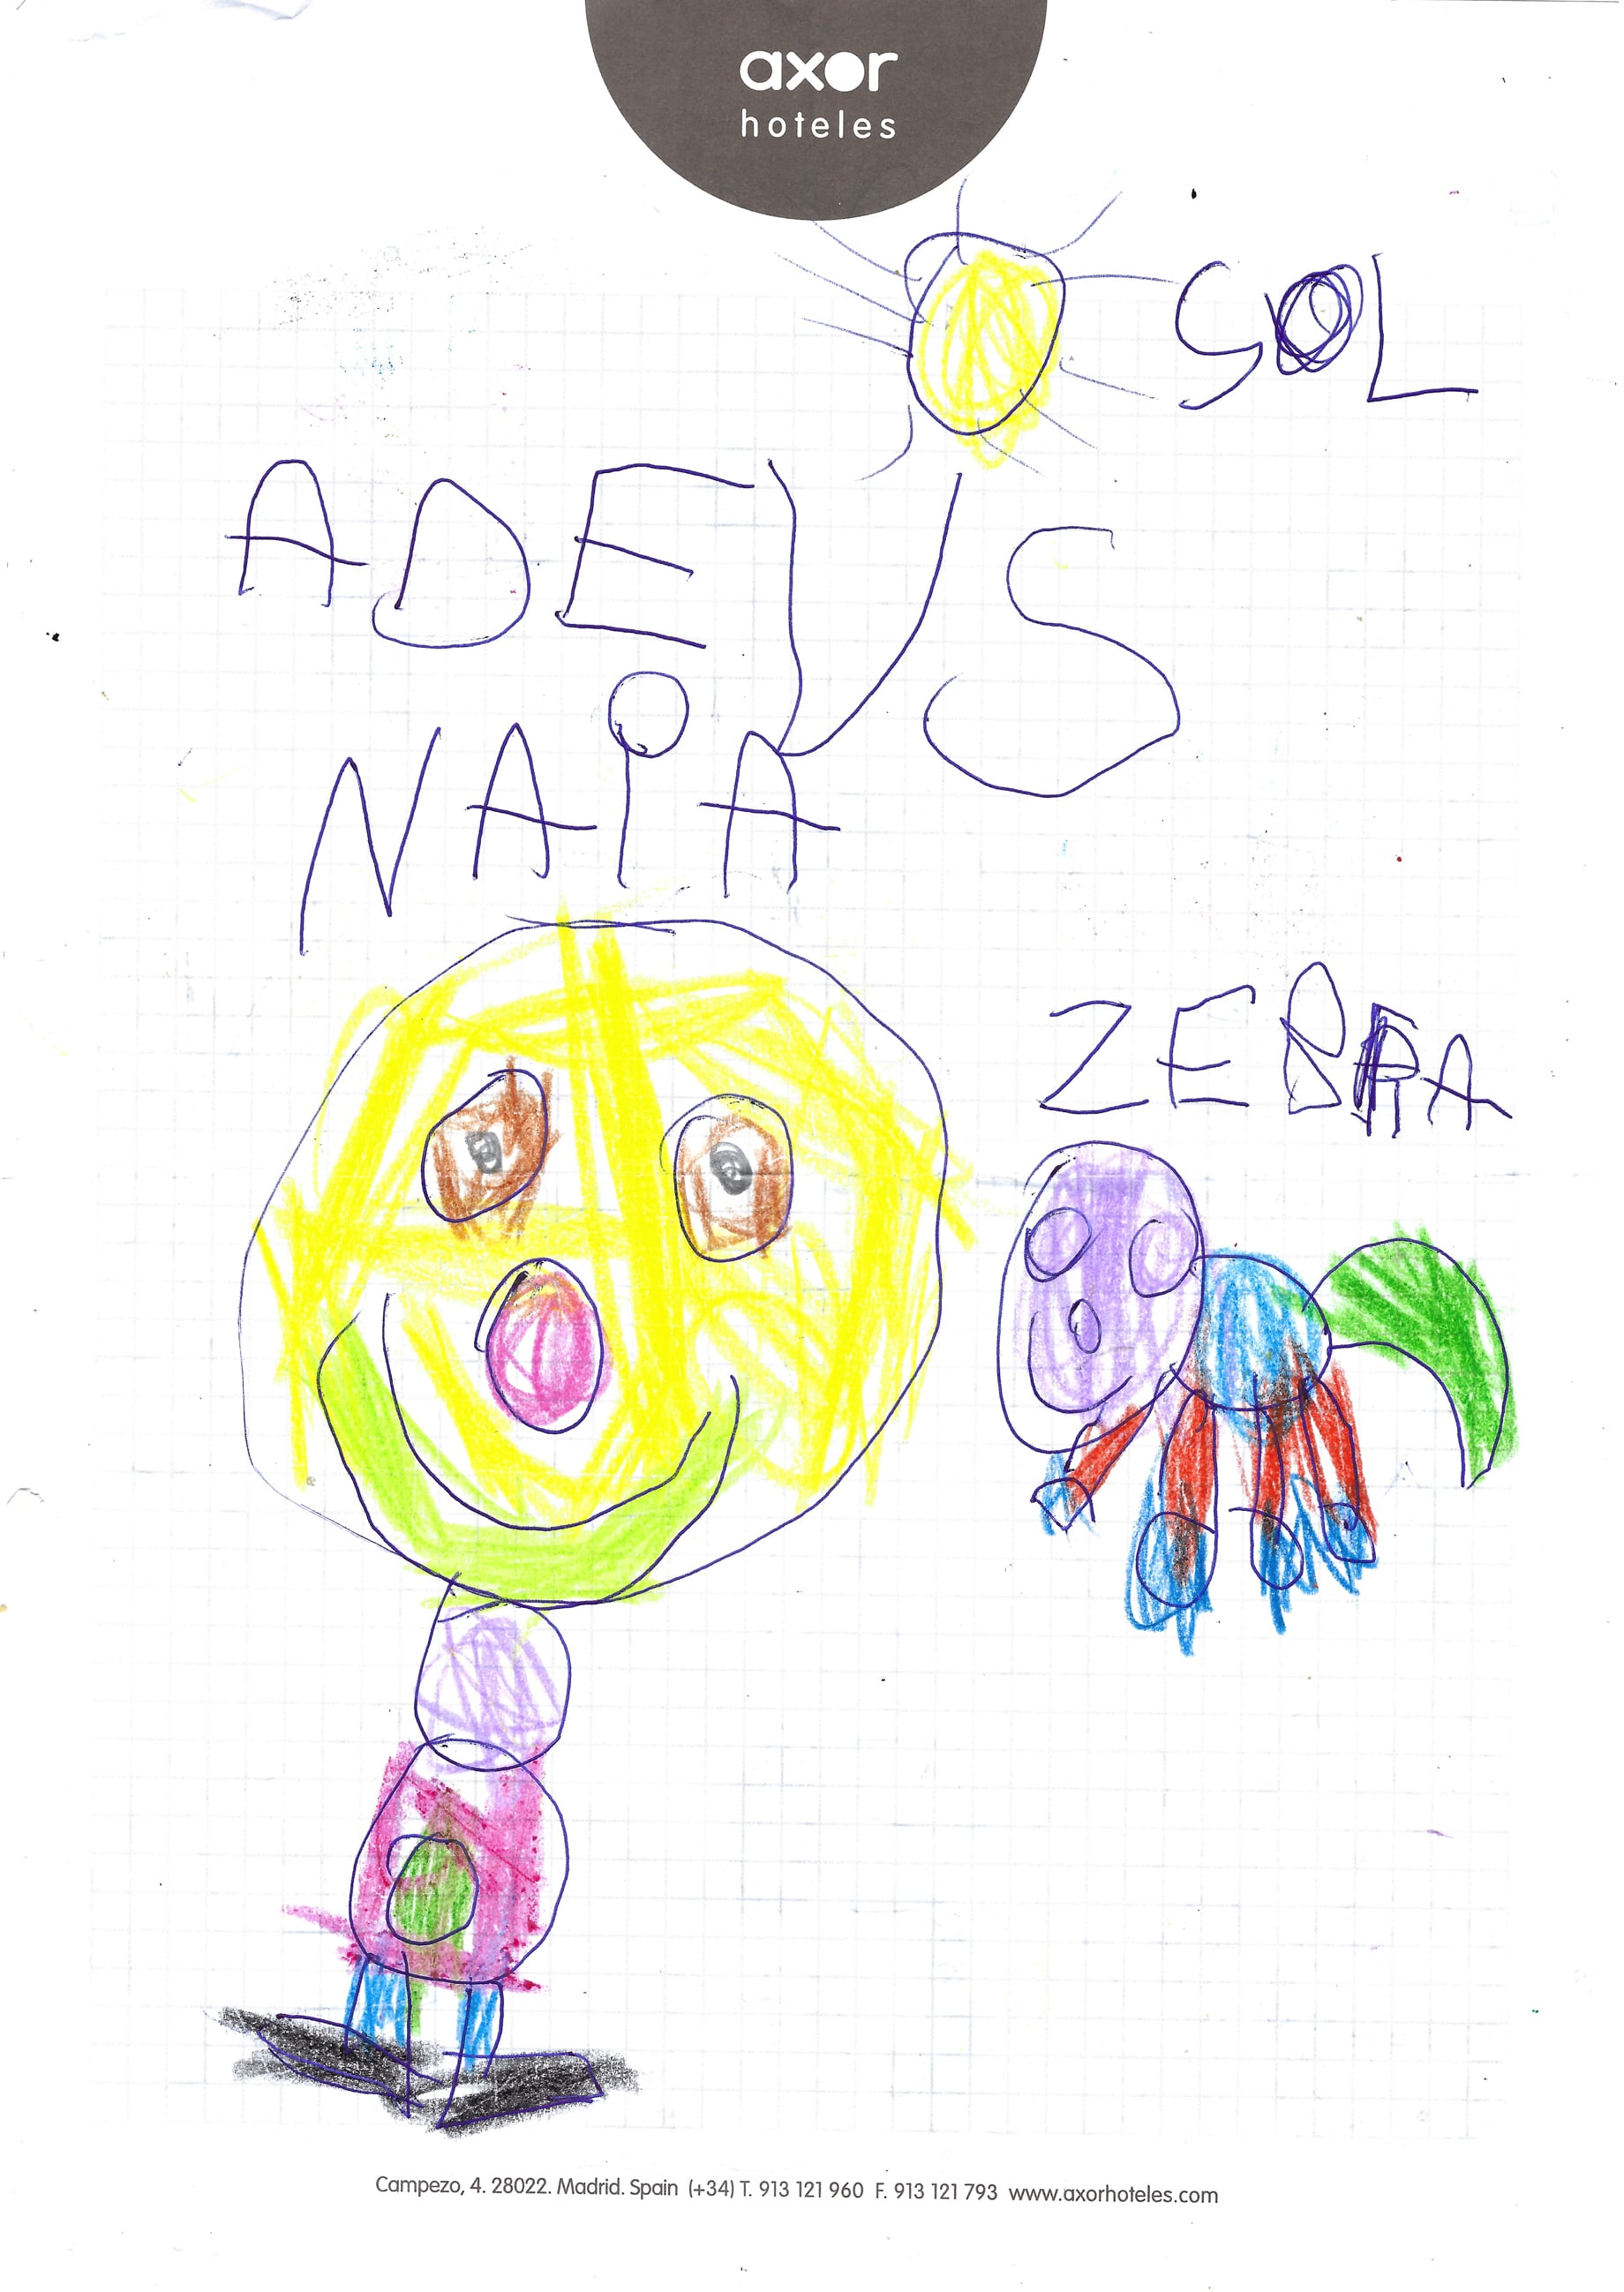 axor
hoteles
SOL
ADEUS
NAiA
ZEBRA
Campezo, 4. 28022. Madrid. Spain (+34) T. 913 121 960 F. 913 121 793 www.axorhoteles.com